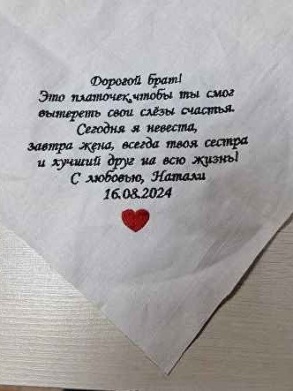 Дорогой брат!
Это платочек,чтобы ты смог
вытереть свои слёзы счастья.
Сегодня я невеста,
завтра жена, всегда твоя сестра
и лучший друг на всю жизнь!
С любовью, Натали
16.08.2024